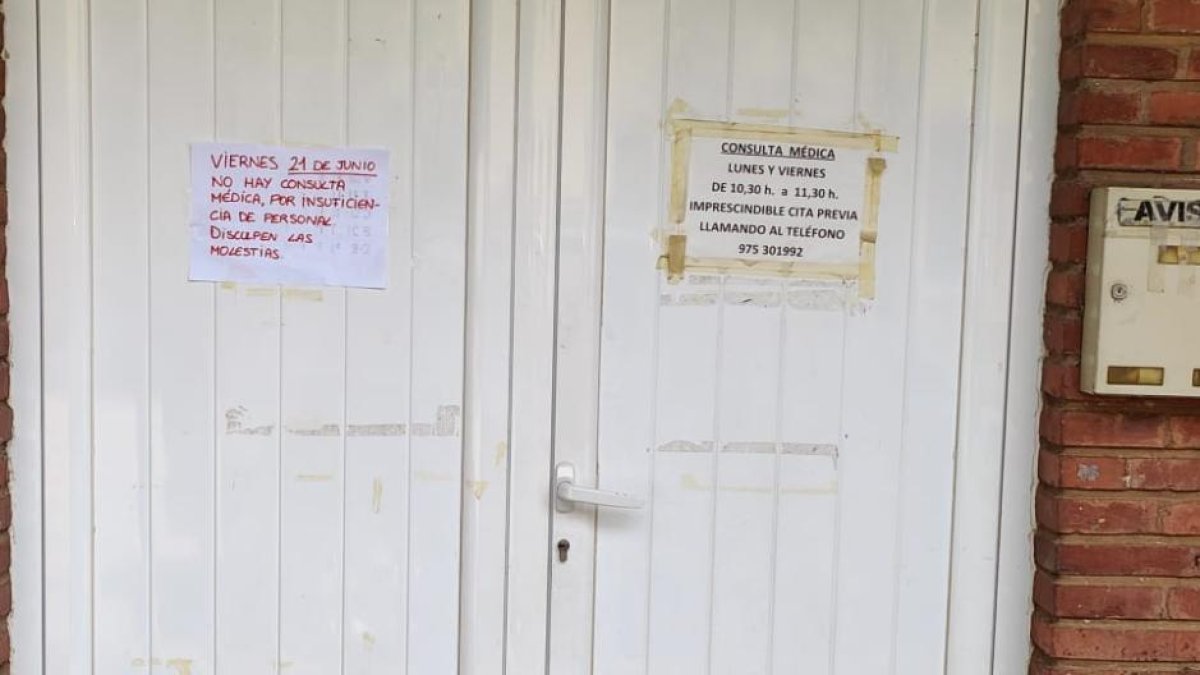 VIERNES 21 DE JUNIO
NO HAY CONSULTA
MÉDICA, POR INSUTICIEN-
CIA DE PERSONAL.
DISCULPEN LAS
MOLESTIAS.
CONSULTA MÉDICA
LUNES Y VIERNES
DE 10,30 h. a 11,30 h.
IMPRESCINDIBLE CITA PREVIA
LLAMANDO AL TELÉFONO
975 301992
AVIS